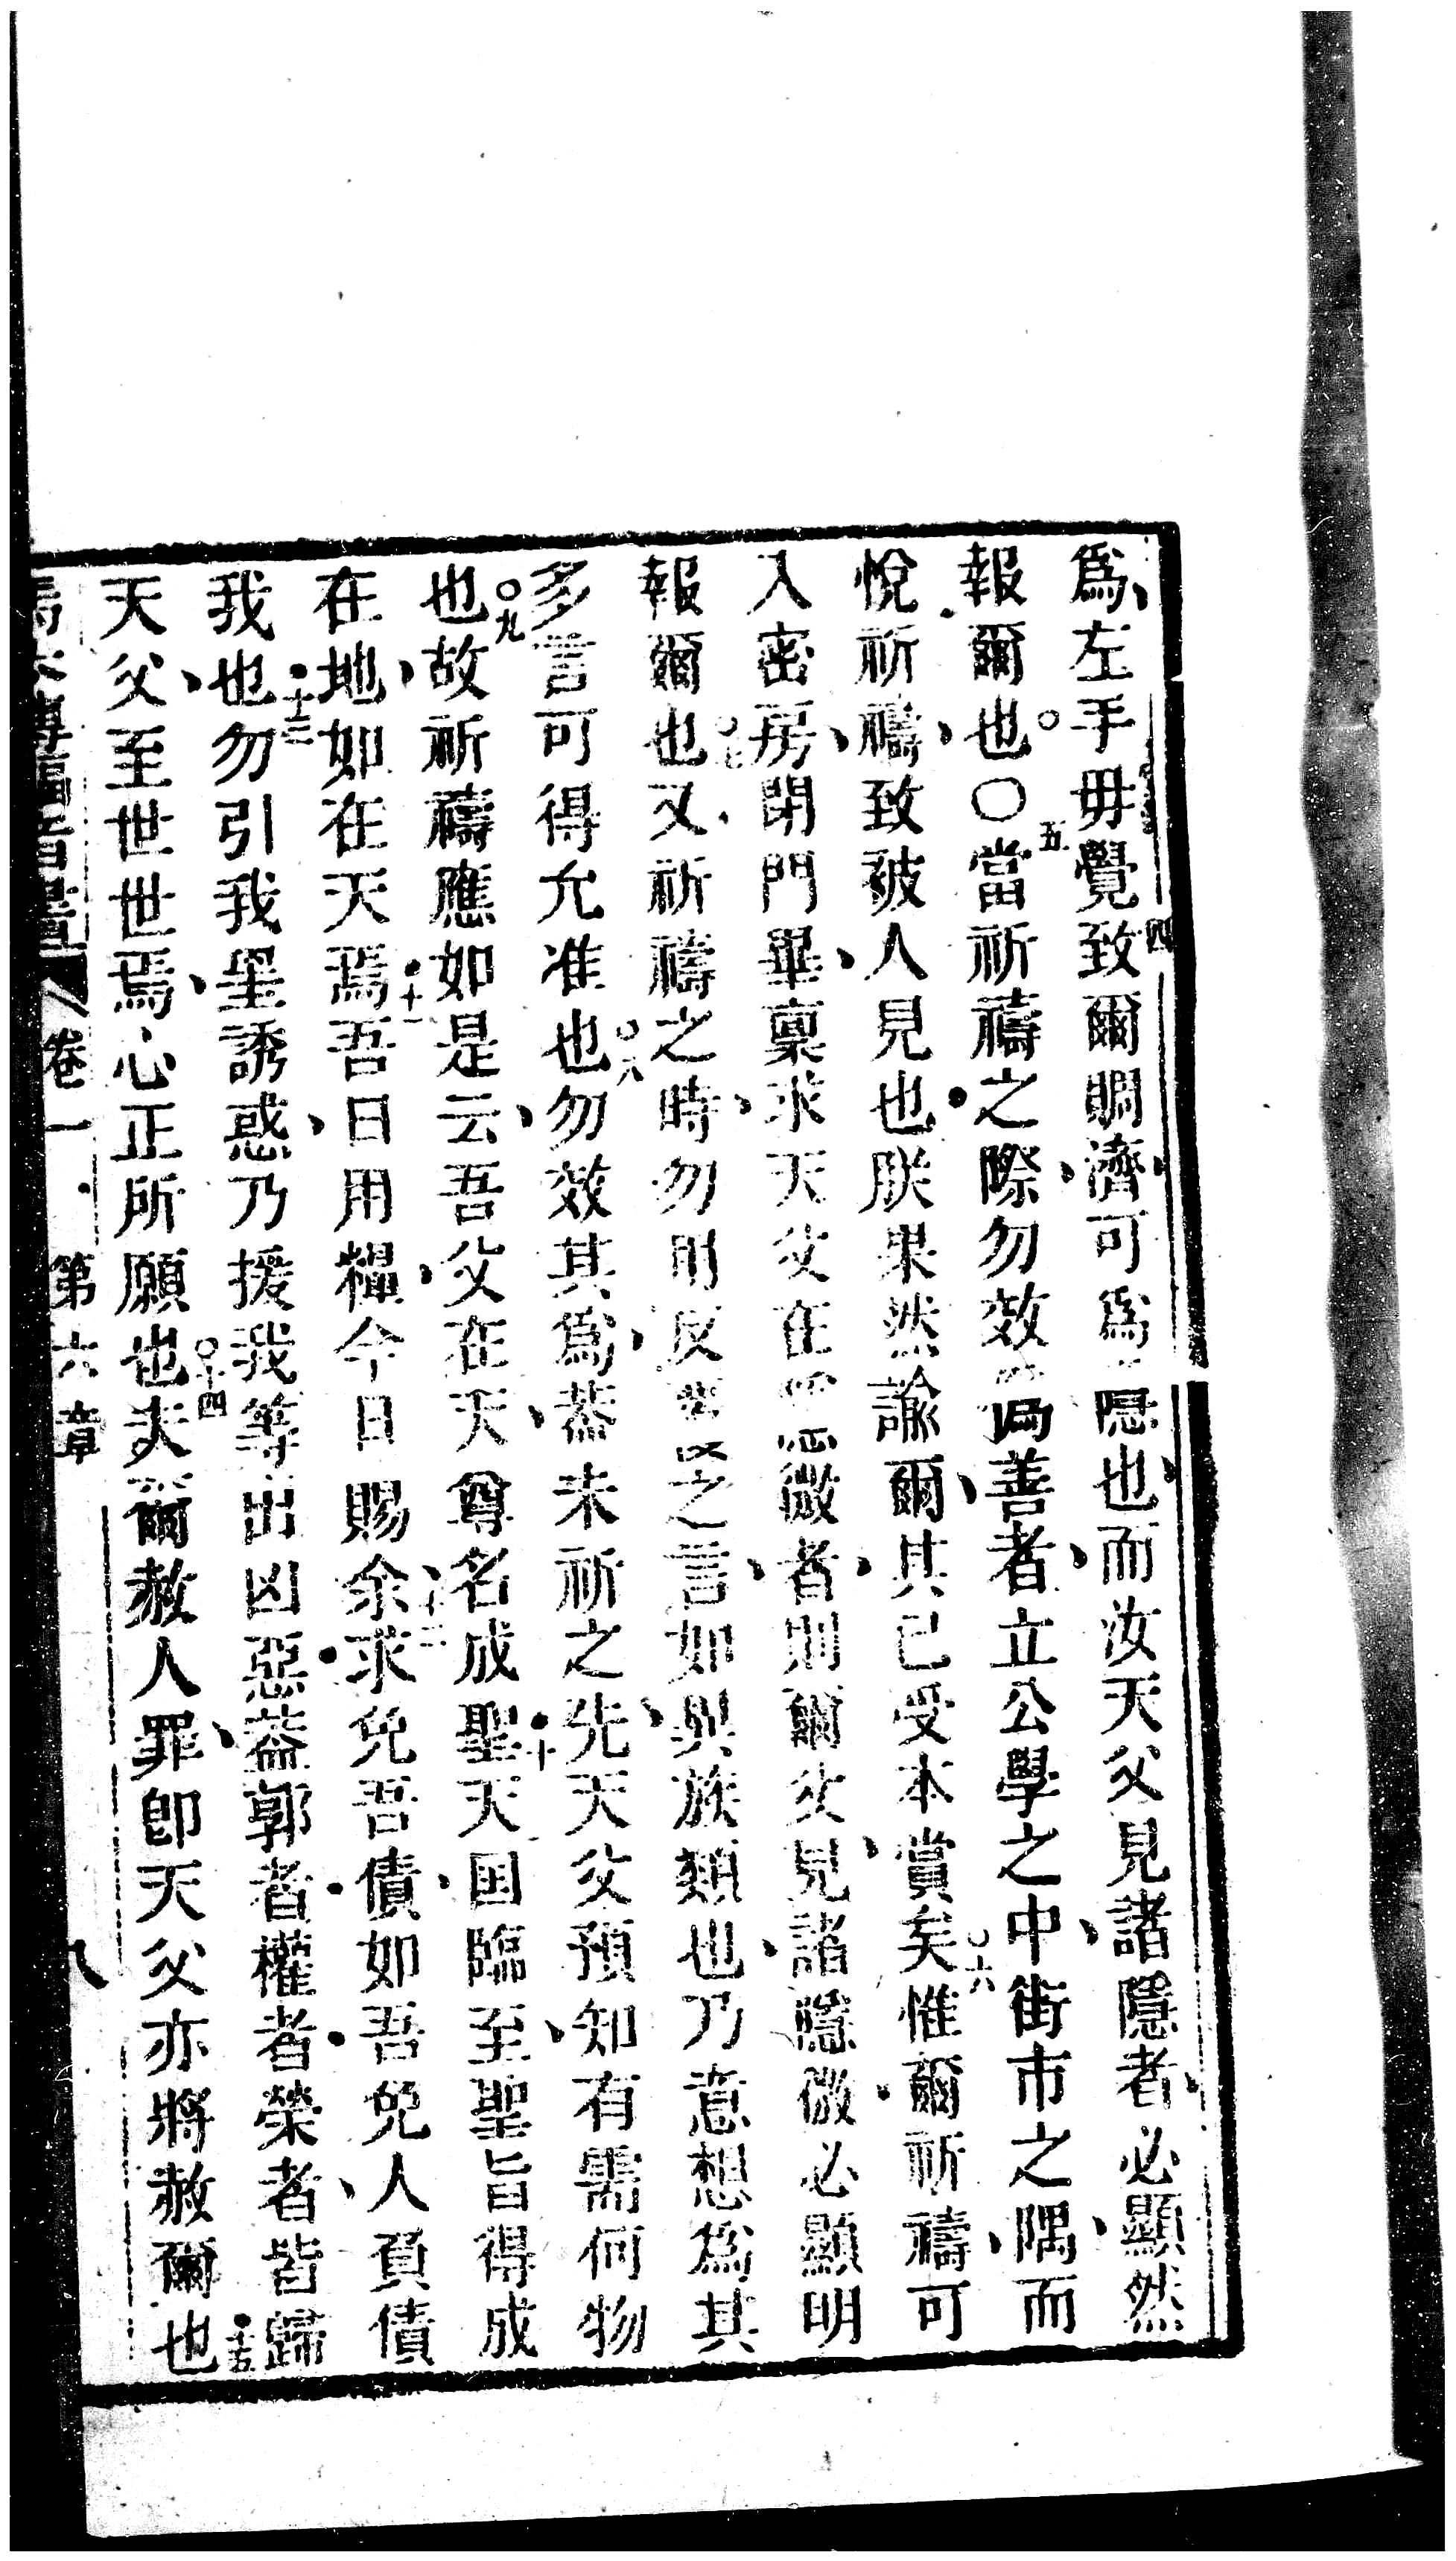 為左手毋覺致爾賙濟可為隱也而汝天父見諸隱者必顯然
報爾也〇當祈禱之際勿效偽善者立公學之中街市之隅而
悅祈禱致被人見也朕果然諭爾其已受本賞矣惟爾祈禱可
入密房閉門畢稟求天父在隱微者則爾父見諸隱微必顯明
報爾也又祈禱之時勿用反之言如異族類也乃意想為其
多言可得允准也勿效其為葢未祈之先天父預知有需何物
也故祈禱應如是云吾父在天尊名成聖天国臨至聖旨得成
在地如在天焉吾日用糧今日賜余求免吾債如吾免人負債
我也勿引我至誘惑乃援我等出凶惡葢郭者權者榮者皆歸
天父至世世焉心正所願也夫爾赦人罪即天父亦將赦爾也
卷一 第六章 八